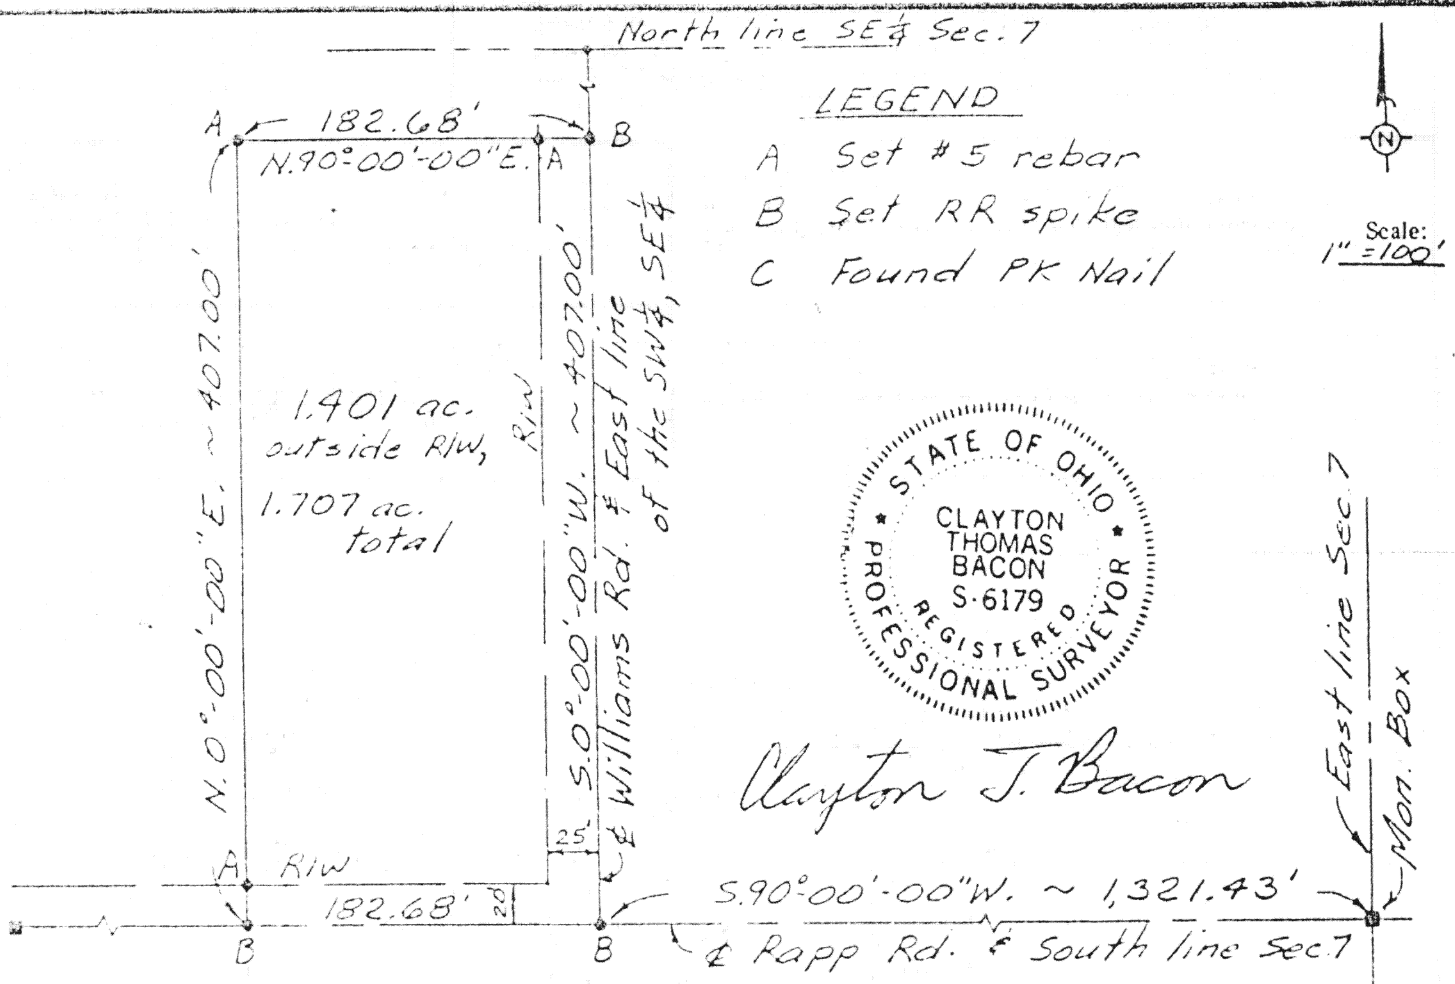 North line SE¼ Sec. 7
LEGEND
A Set #5 rebar
B Set RR spike
C Found PK Nail
N
Scale:
1" = 100'
A
182.68'
B
N.90°-00'-00"E.
A
N.0°-00'-00"E. ~ 407.00'
1.401 ac.
outside R/W,
1.707 ac.
total
R/W
S.0°-00'-00"W. ~ 407.00'
℄ Williams Rd. & East line
of the SW¼, SE¼
STATE OF OHIO
CLAYTON
THOMAS
BACON
S-6179
REGISTERED
PROFESSIONAL SURVEYOR
Clayton T. Bacon
East line Sec. 7
Mon. Box
25'
A
R/W
182.68'
20'
S.90°-00'-00"W. ~ 1,321.43'
B
B
℄ Rapp Rd. & South line Sec. 7